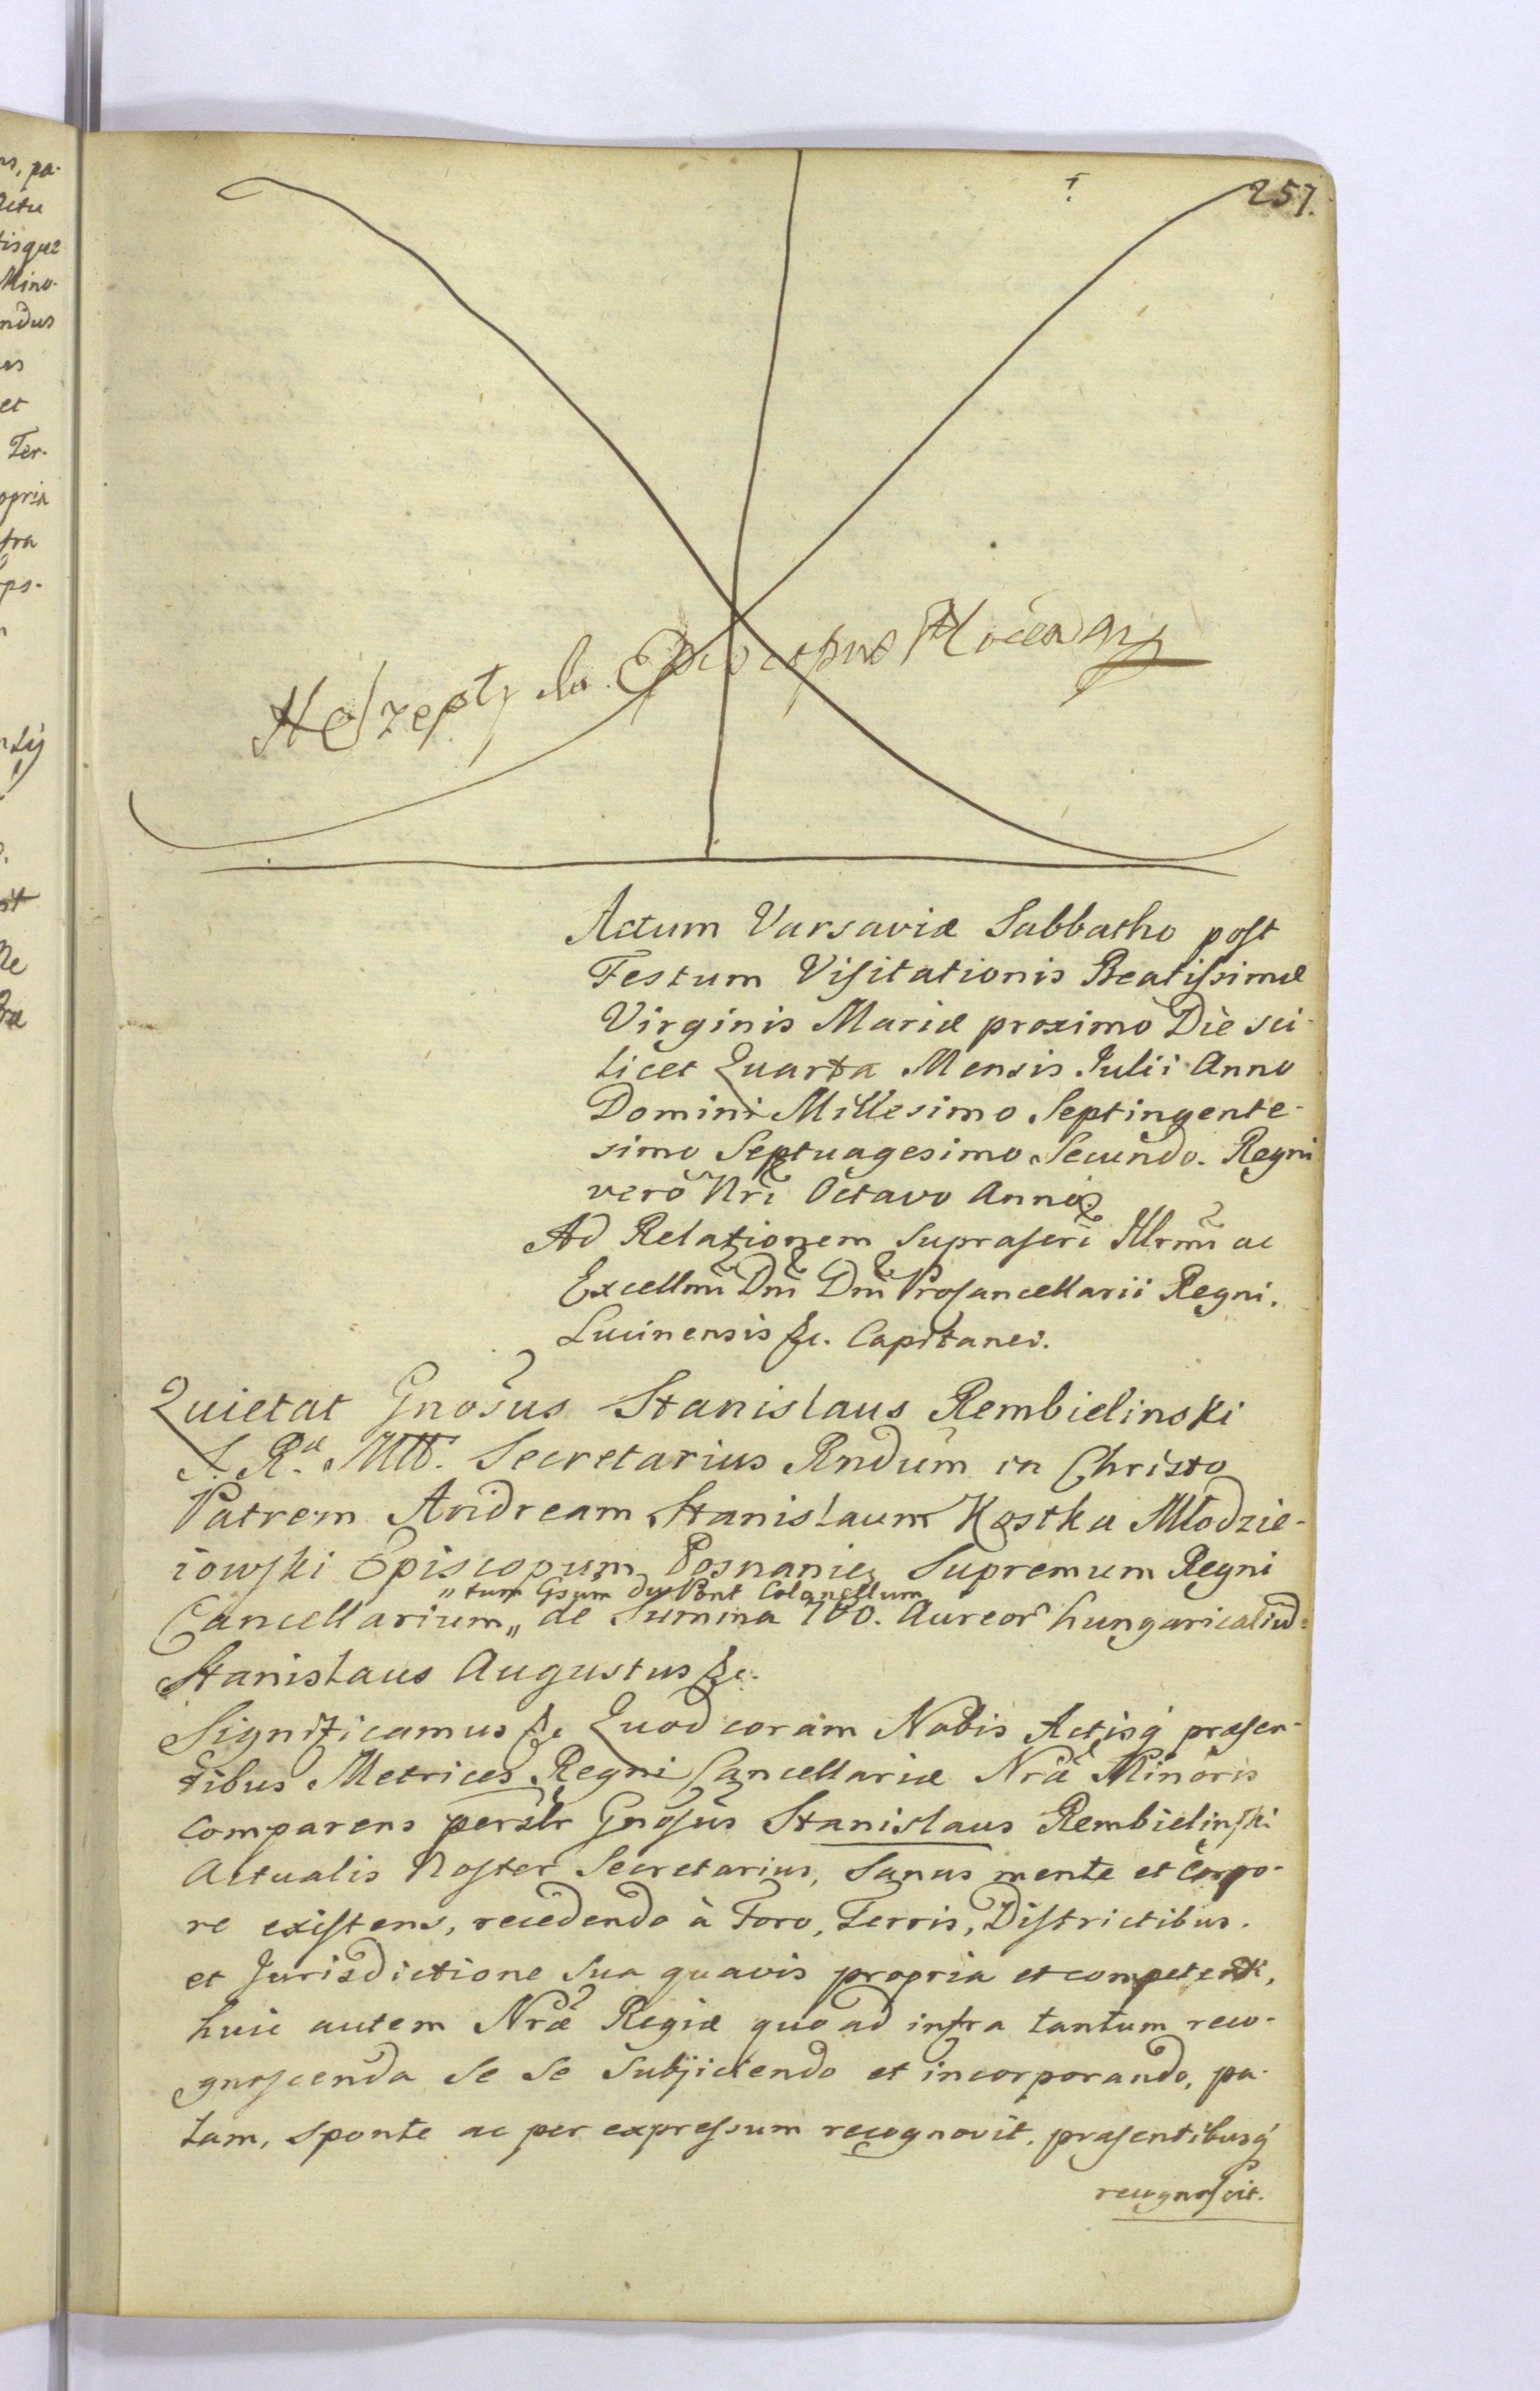 257.
Episcopus
Actum Varsaviæ Sabbatho post
Festum Visitationis Beatissimæ
Virginis Mariæ proximo Die sci-
licet Quarta Mensis Julii Anno
Domini Millesimo Septingente-
simo Septuagesimo Secundo. Regni
vero Nri Octavo Anno
Ad Relationem suprascri Illrmi ac
Excellmi Dni Dni Procancellarii Regni.
Lucinensis &c. Capitanei.
Quietat Gnosus Stanislaus Rembielinski
S. Ræ Mtt. Secretarius Rndum in Christo
Patrem Andream Stanislaum Kostka Młodzie-
iowski Episcopum Posnanie, Supremum Regni
„tum Gsum du Pont Colonellum
Cancellarium„ de Summa 700. Aureor hungaricaliud-
Stanislaus Augustus &c.
Significamus &c Quod coram Nobis Actisq́ præsen-
tibus Metrices Regni Cancellariæ Nræ Minoris
comparens persłr Gnosus Stanislaus Rembielinski
Actualis Noster Secretarius, Sanus mente et corpo-
re existens, recedendo à Foro, Terris, Districtibus.
et Jurisdictione sua quavis propria et competenti,
huic autem Nræ Regiæ quo ad infra tantum reco-
gnoscenda se se subjiciendo et incorporando, pa-
lam, sponte ac per expressum recognovit, præsentibusq́
recognoscit.